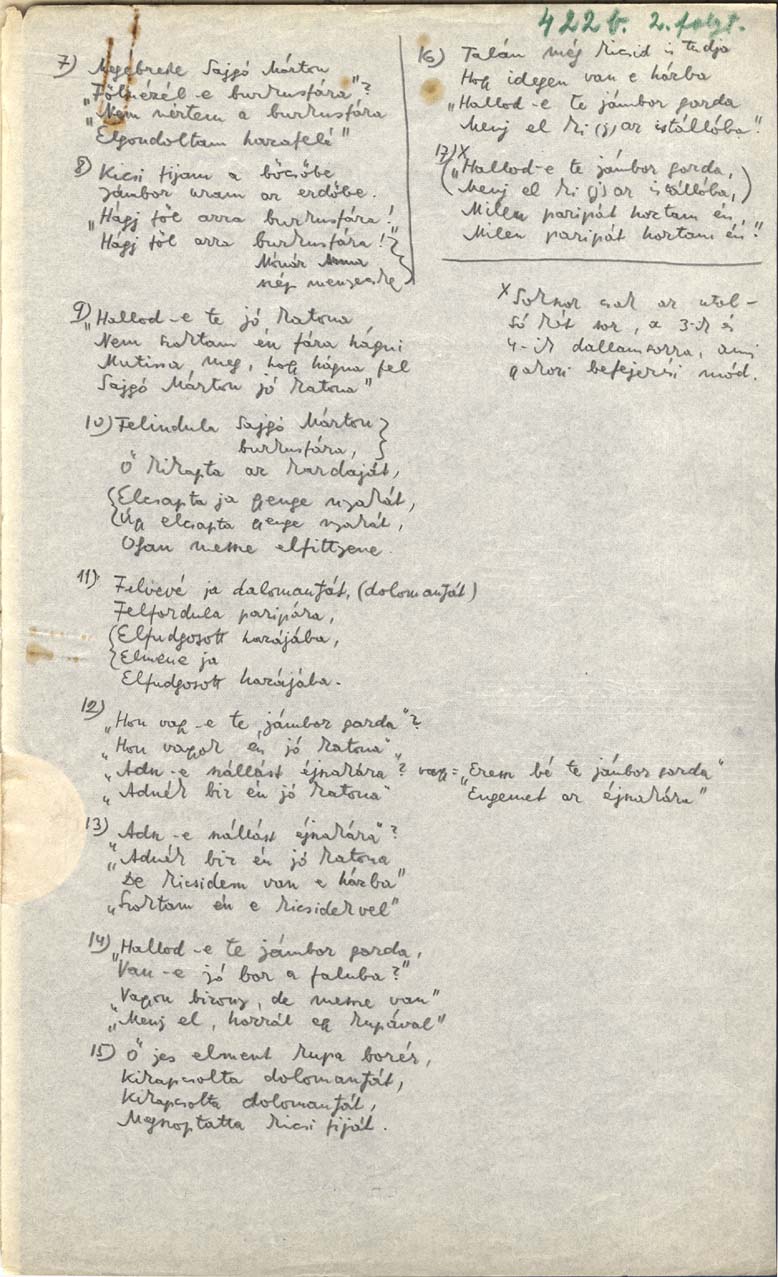 422b. 2. folyt.
7) Megebrede Sajgó Márton
„Fölnézél-e burkusfára"?
„Nem néztem a burkusfára
Elgondoltam hazafelé"
8) Kicsi fijam a bőcsőbe
Jámbor uram az erdőbe.
„Hágj föl arra burkusfára!
Hágj föl arra burkusfára!"
Mónár Anna
szép menyecske
9) „Hallod-e te jó katona
Nem szoktam én fára hágni
Mutissa meg, hogy hágna fel
Sajgó Márton jó katona"
10) Felindula Sajgó Márton
burkusfára,
Ő kikapta az kardaját,
Elcsapta ja gyenge nyakát,
Úgy elcsapta gyenge nyakát,
Ojan messze elfittyene.
11) Felvevé ja dalomanját, (dolomanját)
Felfordula paripára,
Elfudgosott hazájába,
Elméne ja
Elfudgosott hazájába.
12) „Hon vagy-e te jámbor gazda"?
„Hon vagyok én jó katona"
„Adn-e szállást éjszakára? vagy = „Eressz bé te jámbor gazda"
„Adnék biz én jó katona" Engemet az éjszakára"
13) Adn-e szállást éjszakára"?
„Adnék biz én jó katona
De kicsidem van e házba"
„Szoktam én e kicsidekvel"
14) „Hallod-e te jámbor gazda,
Van-e jó bor a faluba?"
„Vagyon bizony, de messze van"
„Menj el, hozzál egy kupával"
15) Ő jes elment kupa borér,
Kikapcsolta dolomanját,
Kikapcsolta dolomanját,
Megszoptatta kicsi fiját.
16) Talán még kicsid is tudja
Hogy idegen van e házba
„Hallod-e te jámbor gazda
Menj el ki (j) az istállóba"
17) x („Hallod-e te jámbor gazda,
Menj el ki (j) az istállóba,)
Milen paripát hoztam én,
Milen paripát hoztam én!"
x Sokszor csak az utol-
só két sor, a 3-ik és
4-ik dallamsorra, ami
gyakori befejezési mód.